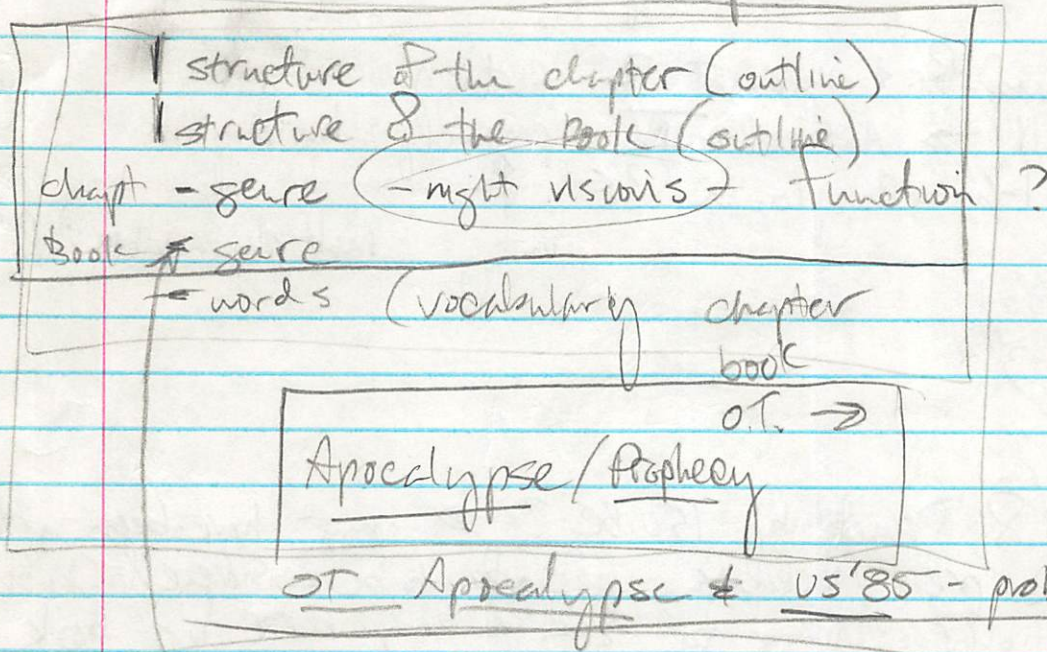 structure of the chapter (outline)
structure of the Book (outline)
chapt - genre (- night visions - function ?
Book genre
- words (vocabulary chapter
book
O.T. →
Apocalypse / Prophecy
OT Apocalypse & US '85 - prob